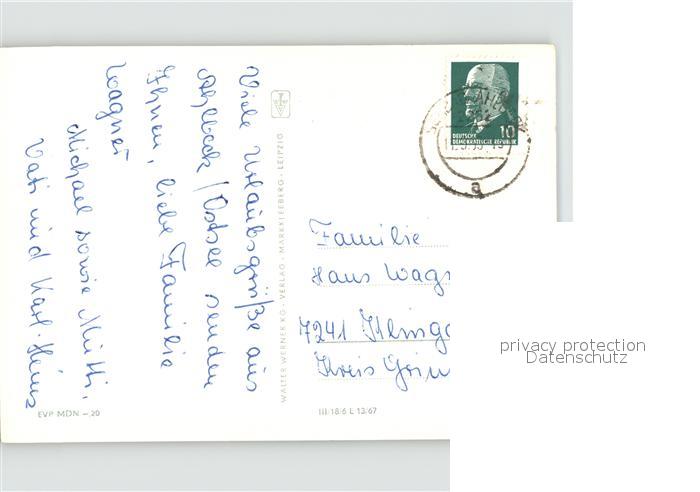 Viele Urlaubsgrüße aus
Ahlbeck/Ostsee senden
Ihnen, liebe Familie
Wagner
Michael sowie Mutti,
Vati und Karl-Heinz
WALTER WERNER KG · VERLAG · MARKKLEEBERG - LEIPZIG
EVP MDN -.20
III/18/6 L 13/67
10
DEUTSCHE
DEMOKRATISCHE REPUBLIK
a
Familie
Hans Wag
7241 Kling
Kreis Grim
privacy protection
Datenschutz